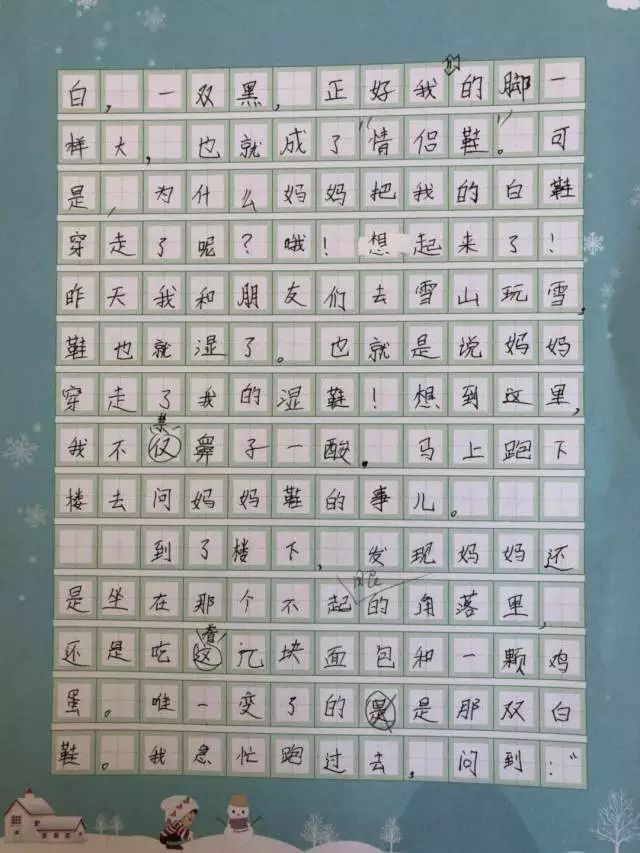 白，一双黑，正好我的的脚一
样大，也就成了“情侣鞋”。可
是，为什么妈妈把我的白鞋
穿走了呢？哦！想起来了！
昨天我和朋友们去雪山玩雪，
鞋也就湿了。也就是说妈妈
穿走了我的湿鞋！想到这里，
我不禁鼻子一酸。马上跑下
楼去问妈妈鞋的事儿。
到了楼下，发现妈妈还
是坐在那个不起眼的角落里，
还是吃着几块面包和一颗鸡
蛋。唯一变了的是那双白
鞋。我急忙跑过去，问到：“